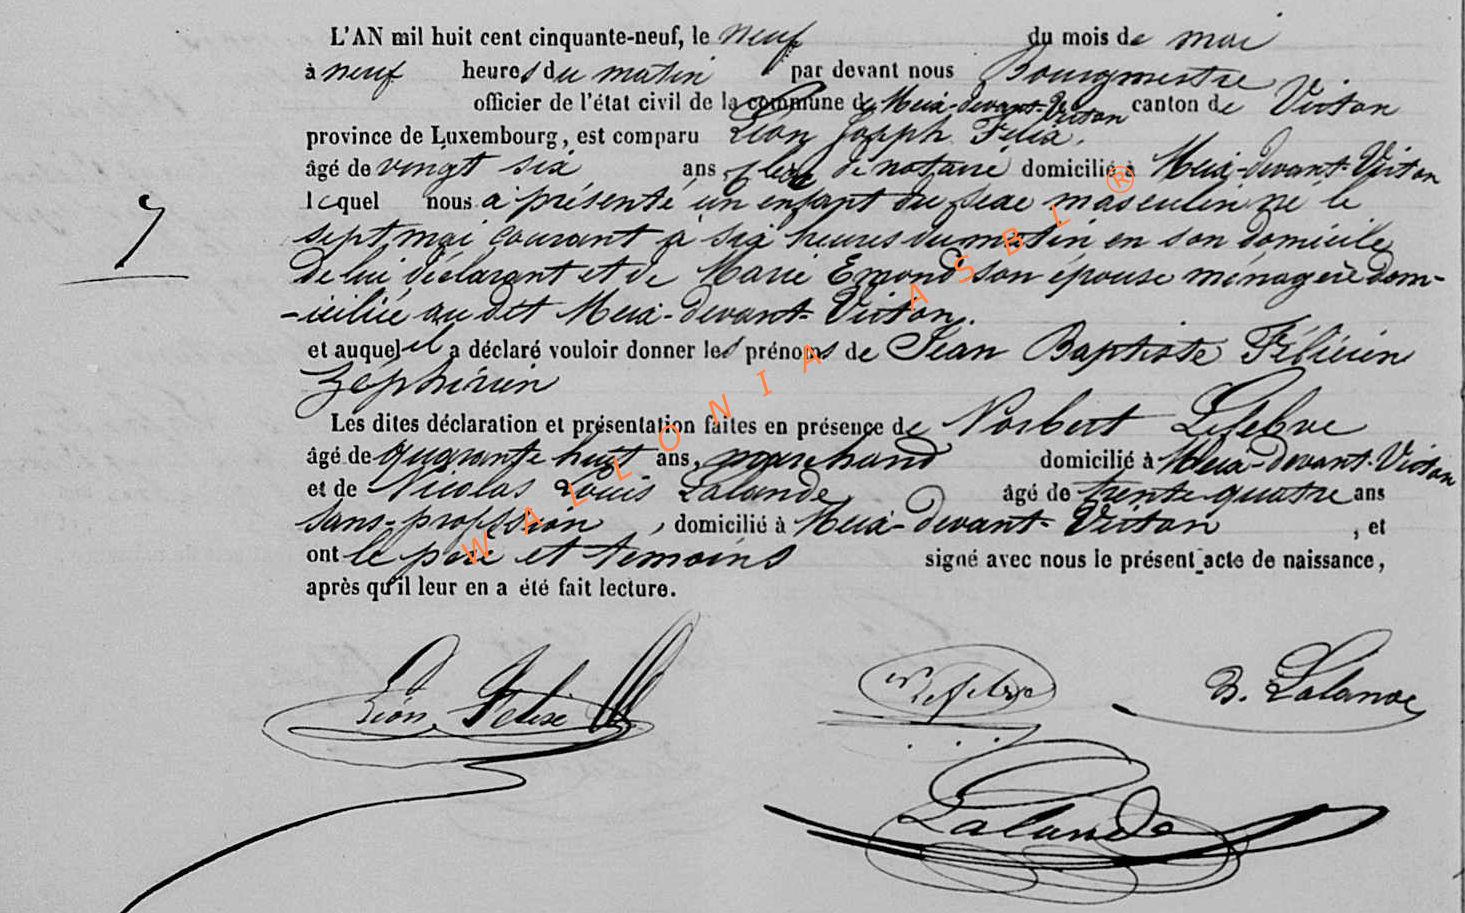 L'AN mil huit cent cinquante-neuf, le neuf du mois de mai
à neuf heures du matin par devant nous Bourgmestre
officier de l'état civil de la commune de Meix-devant-Virton canton de Virton
province de Luxembourg, est comparu Léon Joseph Félix.
âgé de vingt six ans, clerc de notaire domicilié à Meix-devant-Virton
lequel nous a présenté un enfant du sexe masculin né le
sept mai courant à six heures du matin en son domicile
de lui déclarant et de Marie Emond son épouse ménagère dom-
-iciliée au dit Meix-devant-Virton.
et auquel il a déclaré vouloir donner les prénoms de Jean Baptiste Félicien
Zéphirin
Les dites déclaration et présentation faites en présence de Norbert Lefebvre
âgé de quarante huit ans, marchand domicilié à Meix-devant-Virton
et de Nicolas Louis Lalande âgé de trente quatre ans
sans profession, domicilié à Meix-devant-Virton, et
ont le père et temoins signé avec nous le présent acte de naissance,
après qu'il leur en a été fait lecture.
7
Léon Felix
N Lefebvre
B. Lalande
Lalande
WALLONIA ASBL ®